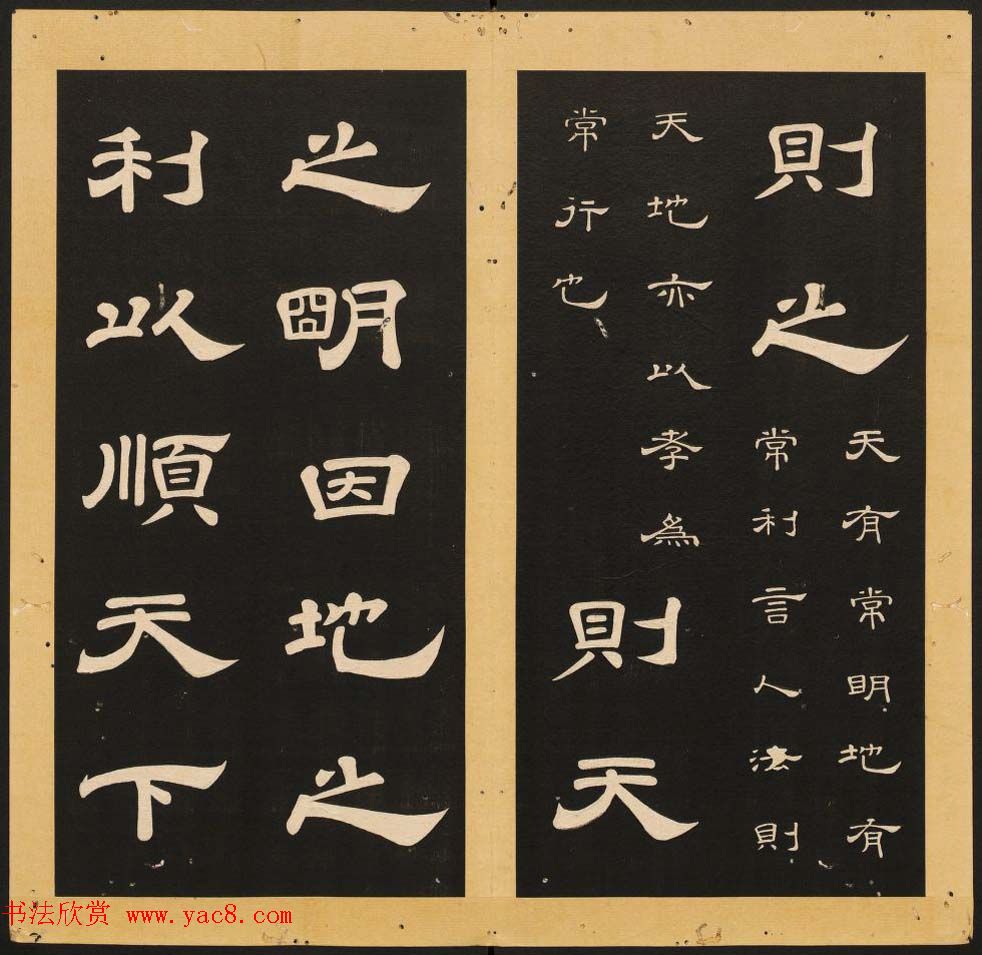 則之
天有常明地有
常利言人法則
天地亦以孝為
常行也
則天
之明因地之
利以順天下
书法欣赏 www.yac8.com